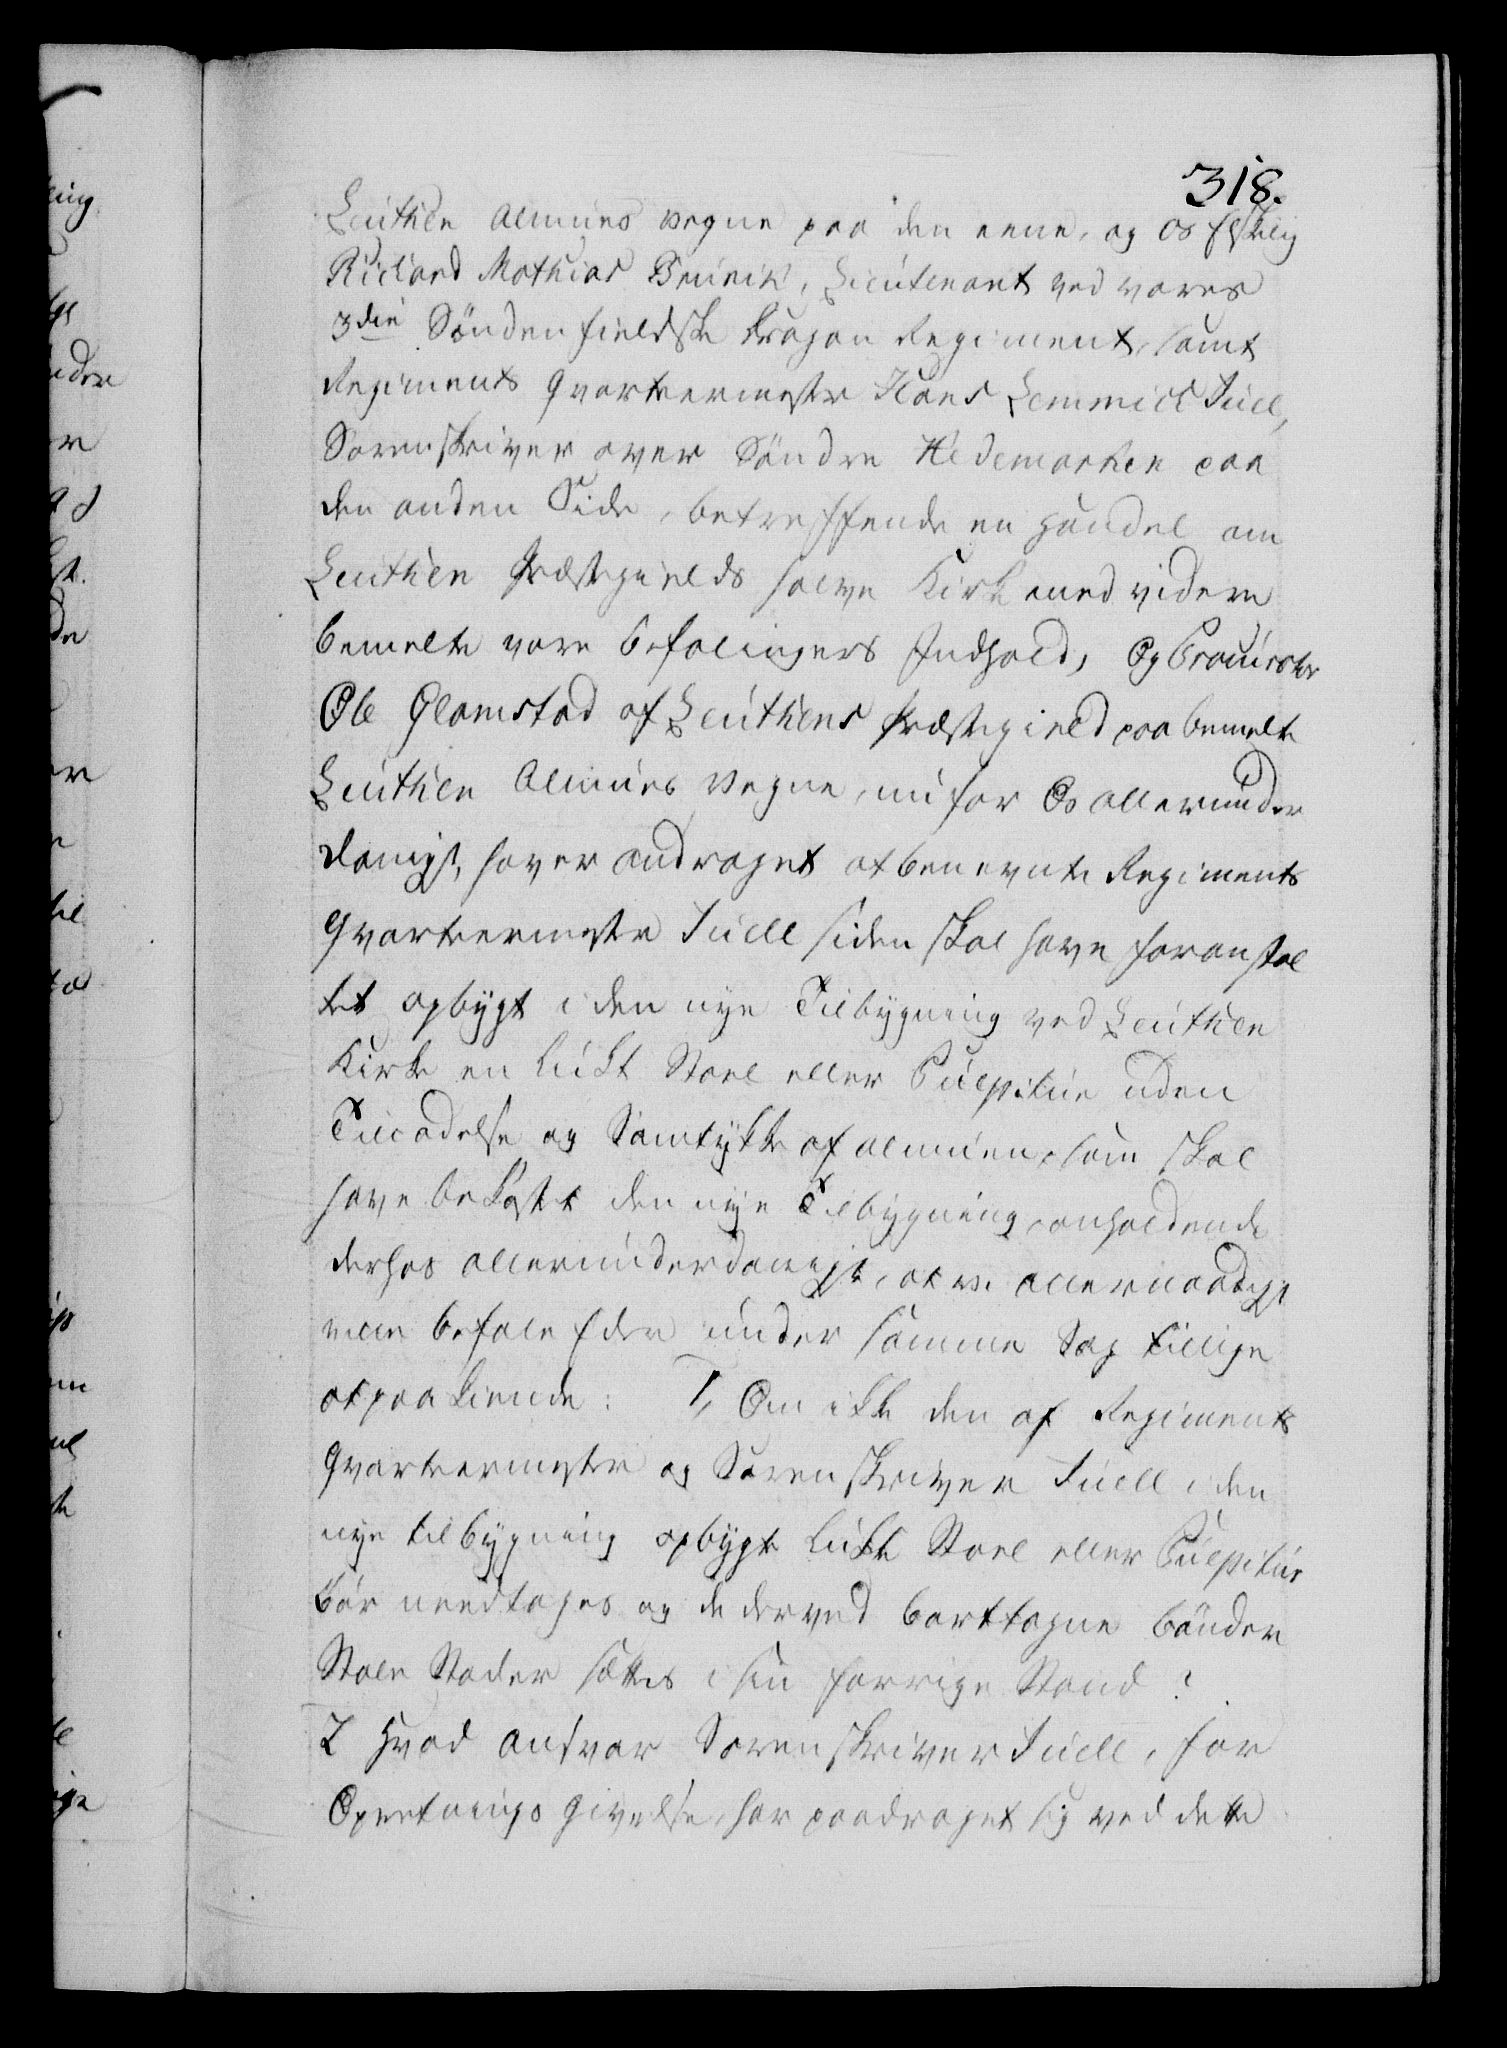 318.
Leuthen Almues vegne paa den eene, og Os Elskelig
Richard Mathias Brinch, Lieutenant ved vores
3die Søndenfieldske Dragon Regiment, samt
Regiments Qvarteermester Hans Lemmich Juell,
Sorenskriver over Søndre Hedemarken paa
den anden Side, betreffende en Handel om
Leuthen Præstegields halve Kirke med videre
bemelte vore Befalingers Indhold, Og Procurator
Ole Glomstad af Leuthens Præstegield paa bemelte
Leuthen Almues Vegne, nu for Os allerunder
danigst haver andraget at benevnte Regiments
Qvarteermester Juell siden skal have foranstal
tet opbygt i den nye Tilbygning ved Leuthen
Kirke en lukt Stoel eller Pulpitur uden
Tilladelse og Samtykke af almuen, som skal
have bekostet den nye Tilbygning, anholdende
derhos allerunderdanigst, at vi allernaadigst
ville befale Eder under samme Sag tillige
at paakiende: 1, Om ikke den af Regiments
Qvarteermester og Sorenskriver Juell i den
nye tilbygning opbygte lukte Stoel eller Pulpitur
bør needtages og de derved borttagne bønder
Stole Stader sættes i sin forrige Stand?
2 Hvad Ansvar Sorenskriver Juell, for
Opretnings Givelse, har paadraget sig ved dette